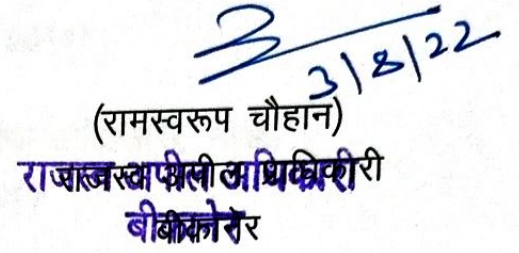 3/8/22
(रामस्वरूप चौहान)
राजस्व अपील अधिकारी
बीकानेर